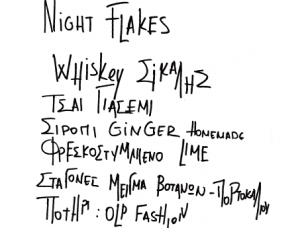 NIGHT FLAKES
WHISKEY ΣΙΚΑΛΗΣ
ΤΣΑΙ ΓΙΑΣΕΜΙ
ΣΙΡΟΠΙ GINGER HOMEMADE
ΦΡΕΣΚΟΣΤΥΜΜΕΝΟ LIME
ΣΤΑΓΟΝΕΣ ΜΕΙΓΜΑ ΒΟΤΑΝΩΝ - ΠΟΡΤΟΚΑΛΙΟΥ
ΠΟΤΗΡΙ: OLD FASHION